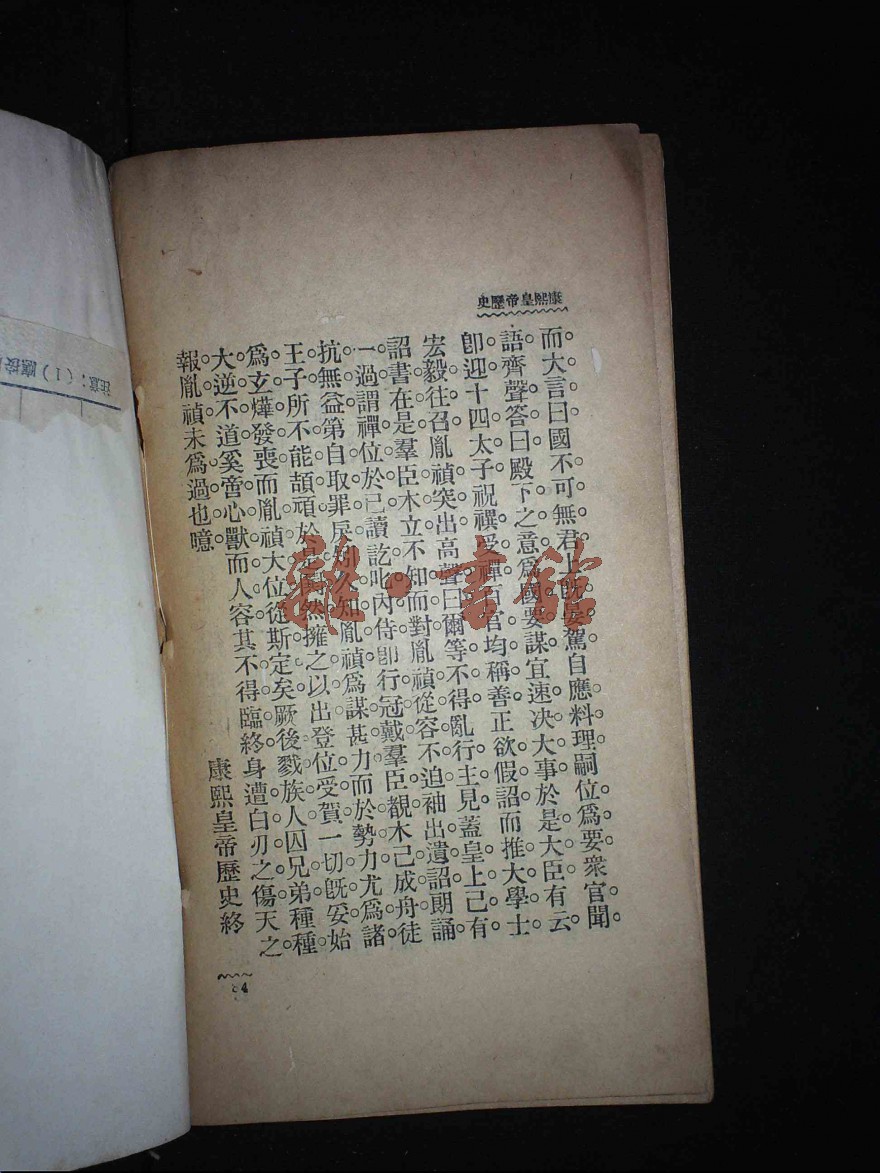 康熙皇帝歷史
而大言曰國不可無君上既晏駕自應料理嗣位爲要衆官聞
語齊聲答曰殿下之意爲國要謀宜速决大事於是大臣有云
卽迎十四太子祝禩受禪百官均稱善正欲假詔而推大學士
宏毅往召胤禎突出高聲曰爾等不得亂行主見蓋皇上己有
詔書在是羣臣木立不知而對胤禎從容不迫袖出遺詔朗誦
一過謂禪位於己讀訖叱內侍卽行冠戴羣臣覩木己成舟徒
抗無益第自取罪戾知久知胤禎爲謀甚力而於勢力尤爲諸
王子所不能頡頏於是閧然擁之以出登位受賀一切旣妥始
爲玄燁發喪而胤禎大位從斯定矣厥後戮族人囚兄弟種種
大逆不道奚啻心獸而人容其不得臨終身遭白刃之傷天之
報胤禎未爲過也噫
康熙皇帝歷史終
84
雜·書館
注意：(1)應按